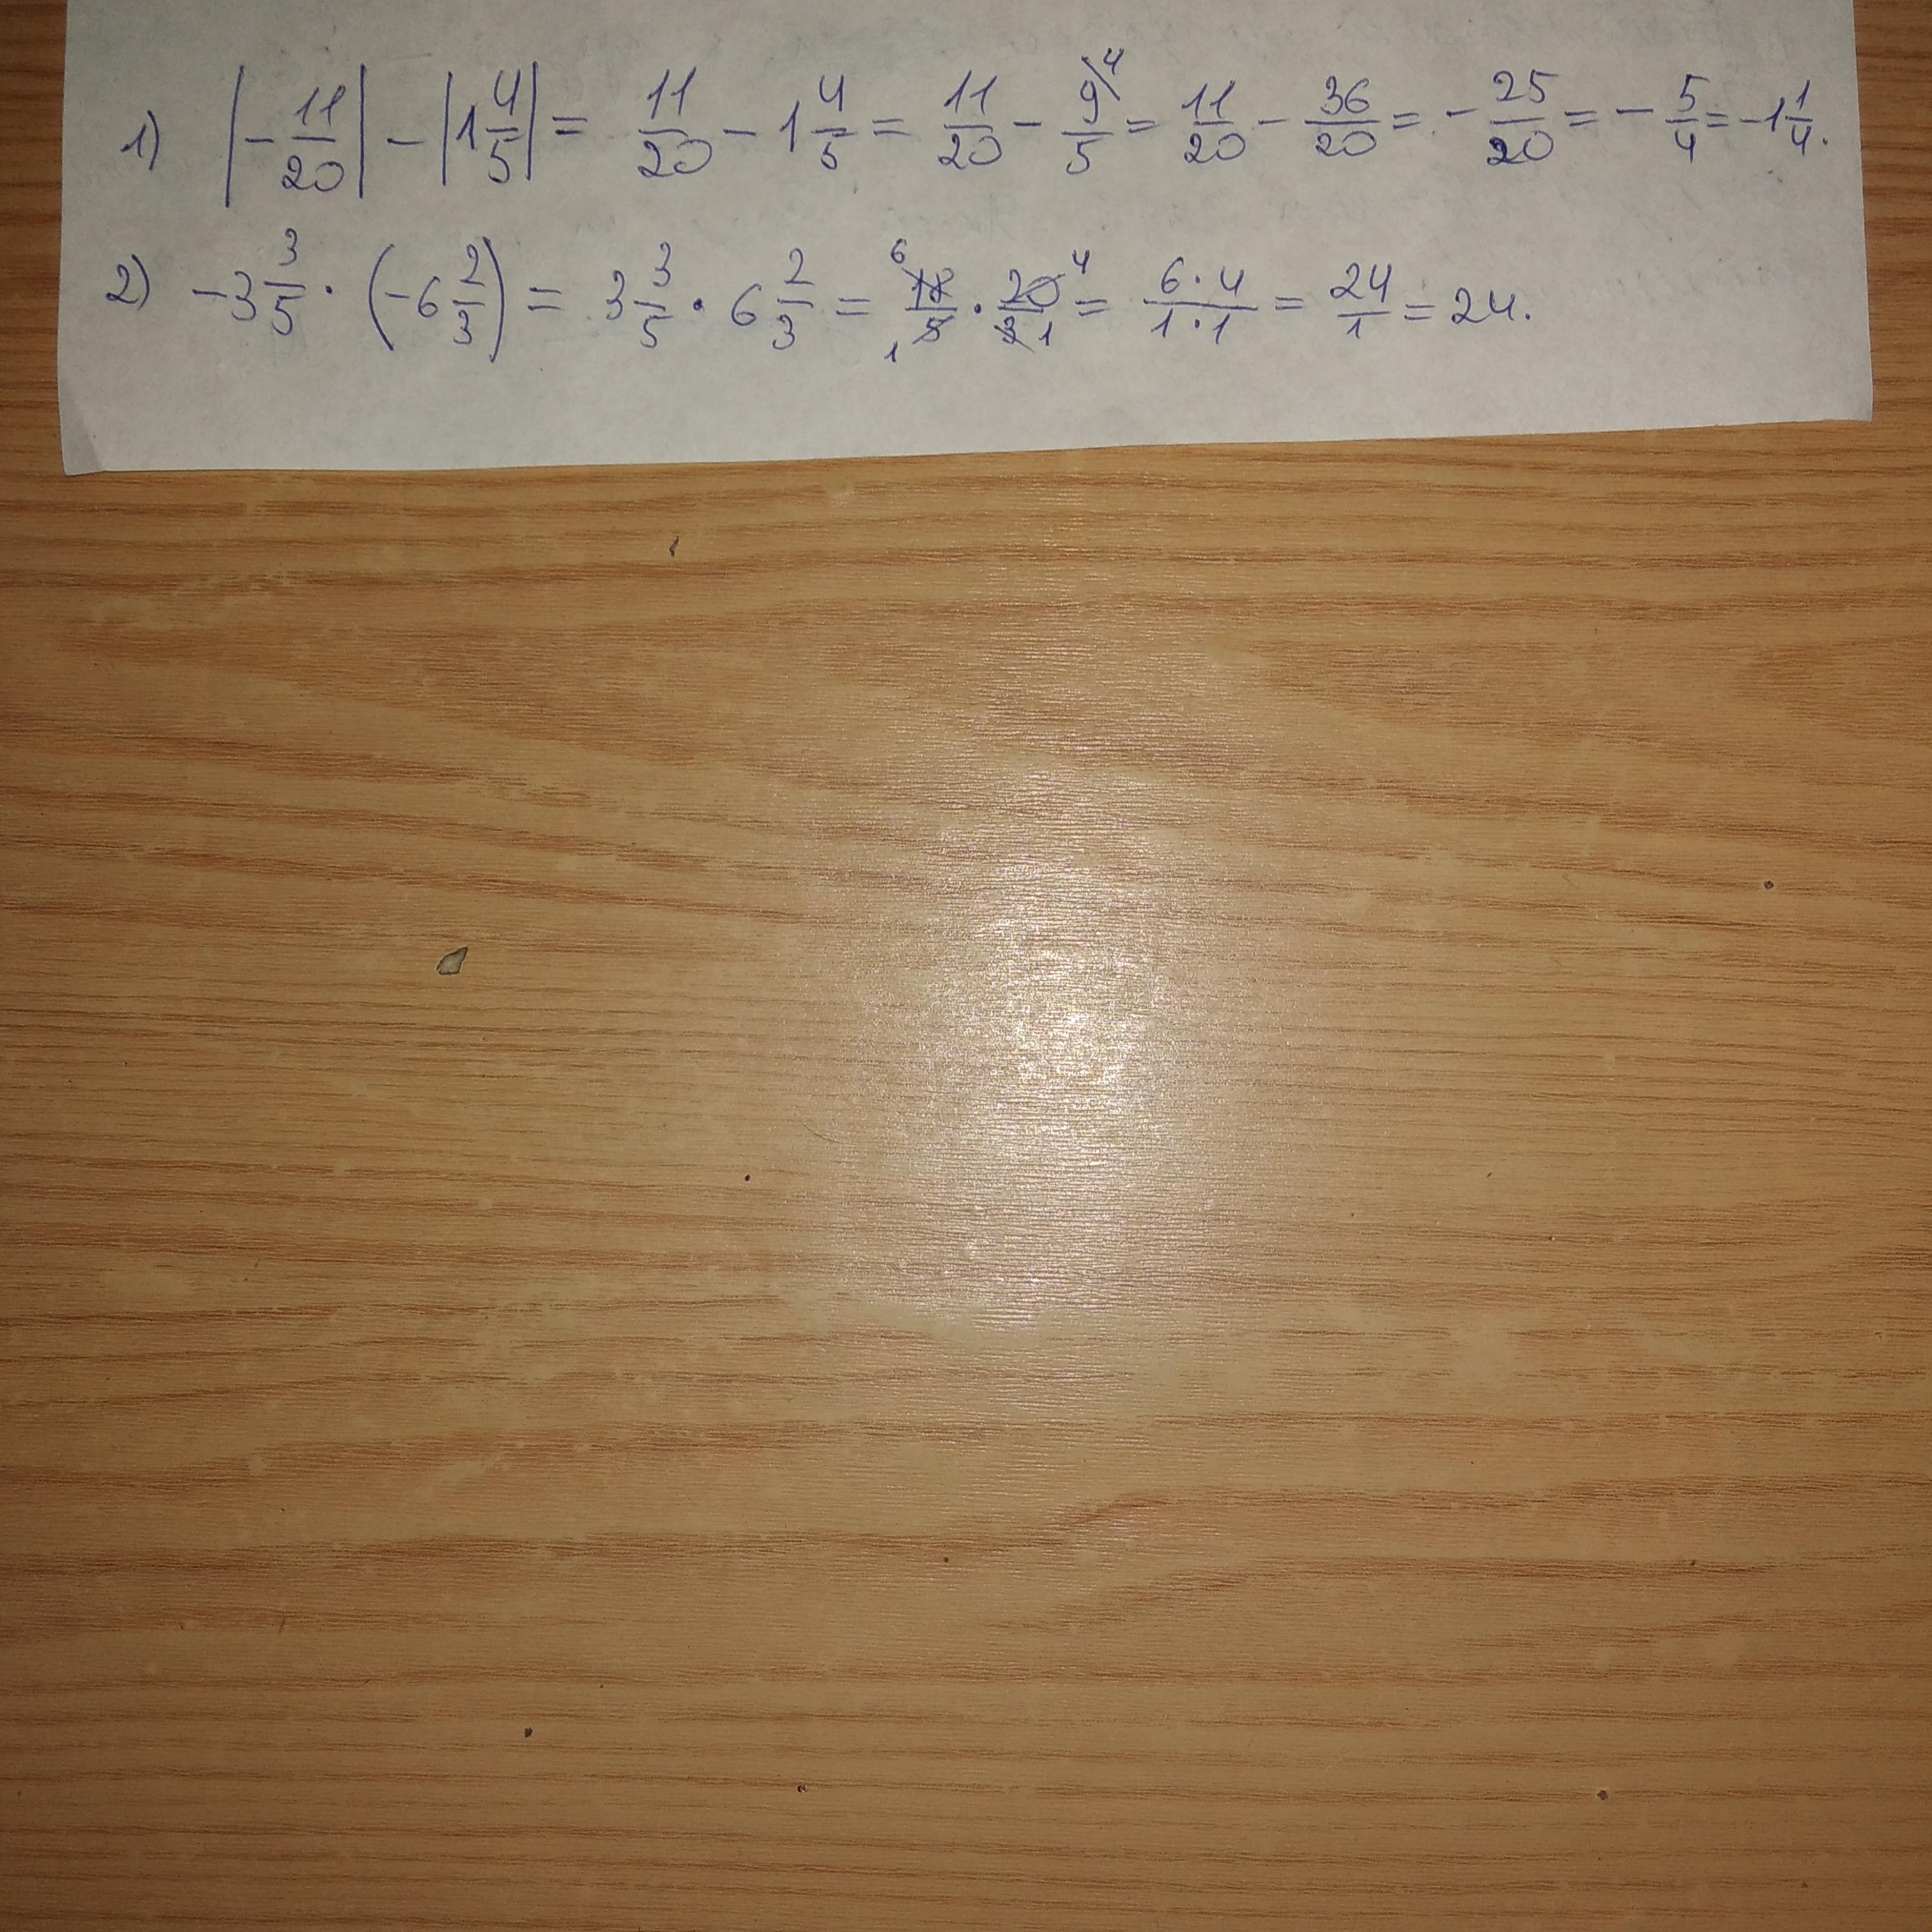 1) |-11/20| - |1 4/5| = 11/20 - 1 4/5 = 11/20 - 9/5 \4 = 11/20 - 36/20 = -25/20 = -5/4 = -1 1/4.
2) -3 3/5 · (-6 2/3) = 3 3/5 · 6 2/3 = 6 18/5 1 · 20/3 4 1 = 6·4/1·1 = 24/1 = 24.